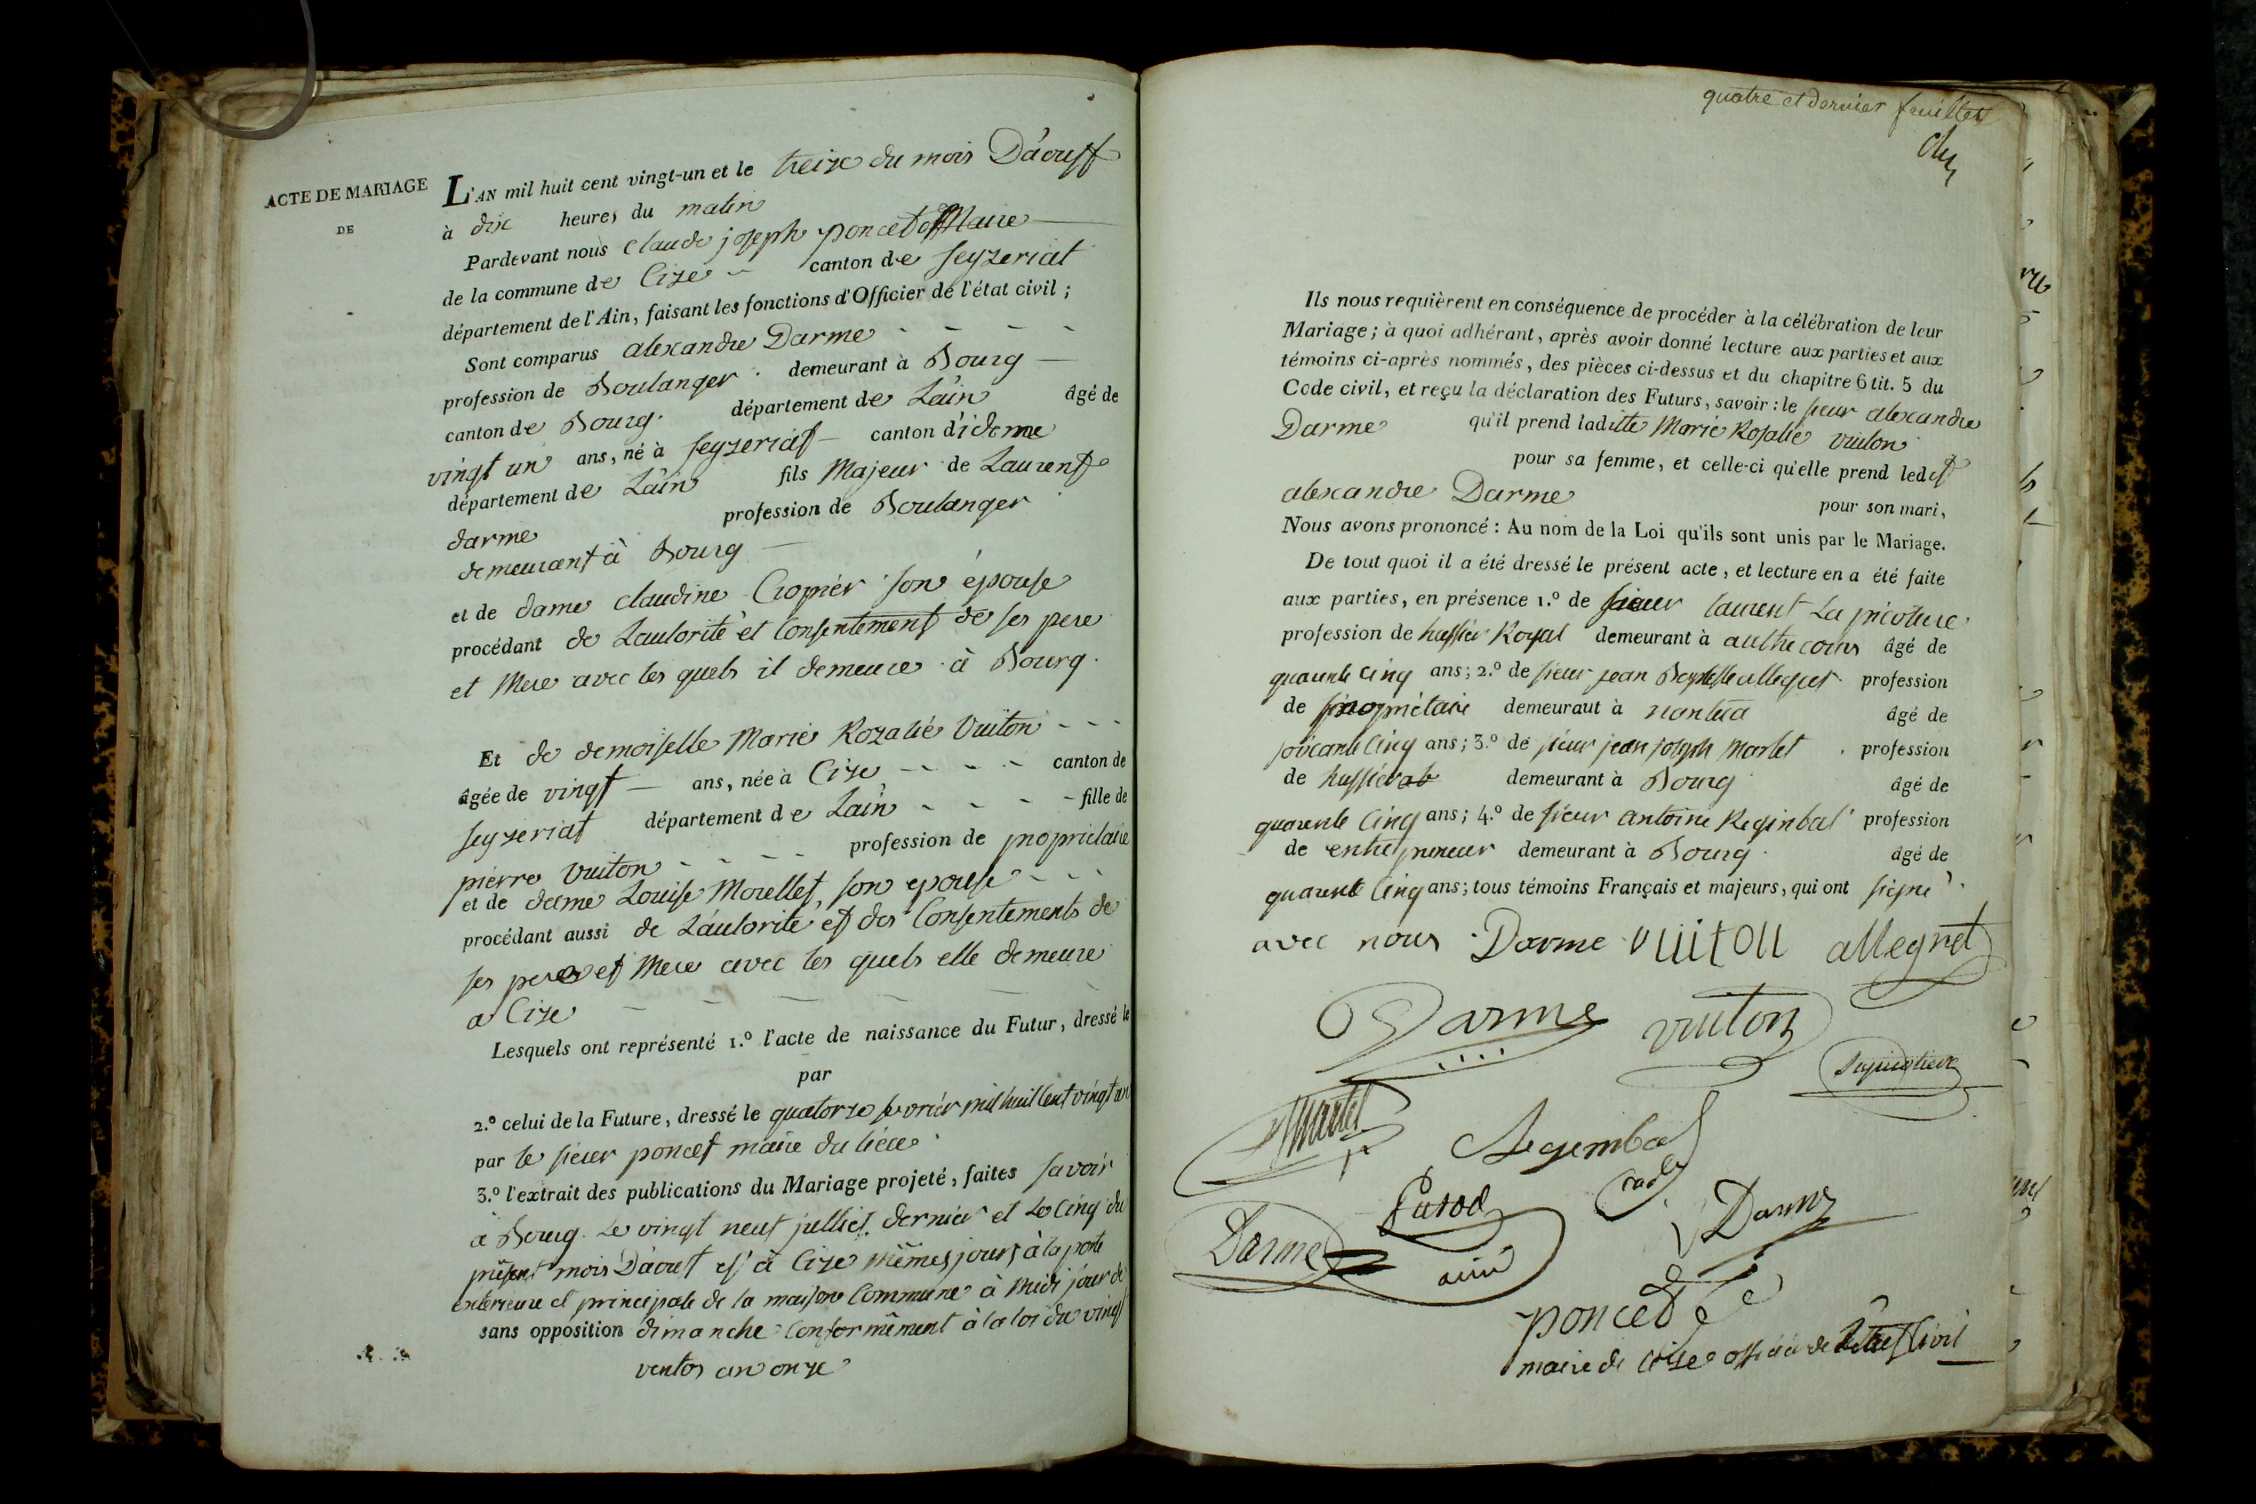 ACTE DE MARIAGE
DE
L'AN mil huit cent vingt-un et le treize du mois D'aoust
à dix heures du matin
Pardevant nous Claude joseph poncet Maire
de la commune de Cize canton de seyzeriat
département de l'Ain, faisant les fonctions d'Officier de l'état civil ;
Sont comparus alexandre Darme
profession de Boulanger demeurant à Bourg
canton de Bourg département de Lain âgé de
vingt un ans, né à seyzeriat canton d'idemme
département de Lain fils Majeur de Laurent
darme profession de Boulanger
demeurant à Bourg
et de dame claudine Cropier son épouse
procédant de Lautorité et Consentement de ses pere
et Mere avec les quels il demeure à Bourg.
Et de demoiselle Marie Rozalié Vuiton
âgée de vingt ans, née à Cize canton de
seyzeriat département de Lain fille de
pierre Vuiton profession de propriétaire
et de dame Louise Morellet, son epouse
procédant aussi de Láutorité et des Consentements de
ses pere et Mere avec les quels elle demeure
a Cize
Lesquels ont représenté 1.º l'acte de naissance du Futur, dressé le
par
2.º celui de la Future, dressé le quatorze fevrier mil huit Cent vingt un
par le sieur poncet maire du liéce
3.º l'extrait des publications du Mariage projeté, faites savoir
à Bourg Le vingt neuf julliet dernier et le Cinq du
présent mois Daout et à Cize mêmes jours à la porte
exterieure et principale de la maison Commune à Midi jour de
sans opposition dimanche Conformément à la loi du vingt
ventos an onze
quatre et dernier feuillet
Ils nous requièrent en conséquence de procéder à la célébration de leur
Mariage ; à quoi adhérant, après avoir donné lecture aux parties et aux
témoins ci-après nommés, des pièces ci-dessus et du chapitre 6 tit. 5 du
Code civil, et reçu la déclaration des Futurs, savoir : le sieur alexandre
Darme qu'il prend laditte Marie Rosalie vuiton
pour sa femme, et celle-ci qu'elle prend ledit
alexandre Darme pour son mari,
Nous avons prononcé : Au nom de la Loi qu'ils sont unis par le Mariage.
De tout quoi il a été dressé le présent acte, et lecture en a été faite
aux parties, en présence 1.º de sieur laurent La picotiere
profession de hussier Royal demeurant à authecour âgé de
quarente Cinq ans ; 2.º de sieur jean Baptiste allegret profession
de propriétaire demeuraut à nantua âgé de
soixante Cinq ans ; 3.º de sieur jean joseph Martet profession
de hussier demeurant à Bourg âgé de
quarente Cinq ans ; 4.º de sieur antoine Reginbal profession
de entrepreneur demeurant à Bourg âgé de
quarente Cinq ans ; tous témoins Français et majeurs, qui ont signé
avec nous Darme vuitou allegret
Darme vuiton
Martet Regembal
Darme Putod Darme
ainé
poncet
maire de Cize officier de Letat Civil